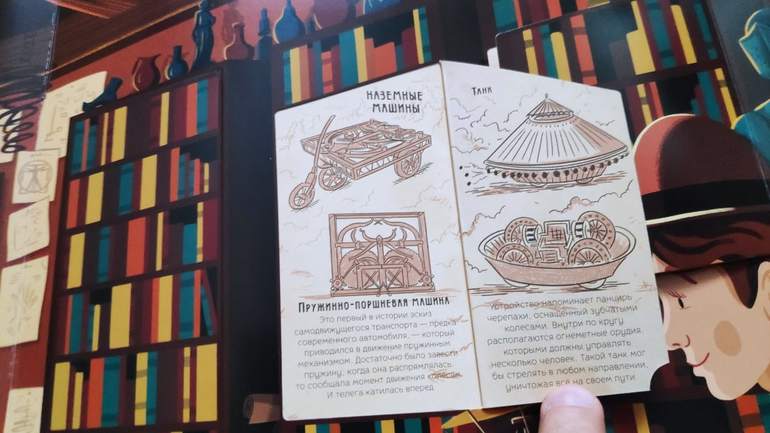 НАЗЕМНЫЕ
МАШИНЫ
ПРУЖИННО-ПОРШНЕВАЯ МАШИНА
Это первый в истории эскиз
самодвижущегося транспорта — предка
современного автомобиля, — который
приводился в движение пружинным
механизмом. Достаточно было завести
пружину, когда она распрямлялась,
то сообщала момент движения
И телега катилась вперед.
ТАНК
Устройство напоминает панцирь
черепахи, оснащенный зубчатыми
колесами. Внутри по кругу
располагаются огнеметные орудия,
которыми должны управлять
несколько человек. Такой танк мог
бы стрелять в любом направлении,
уничтожая всё на своем пути.